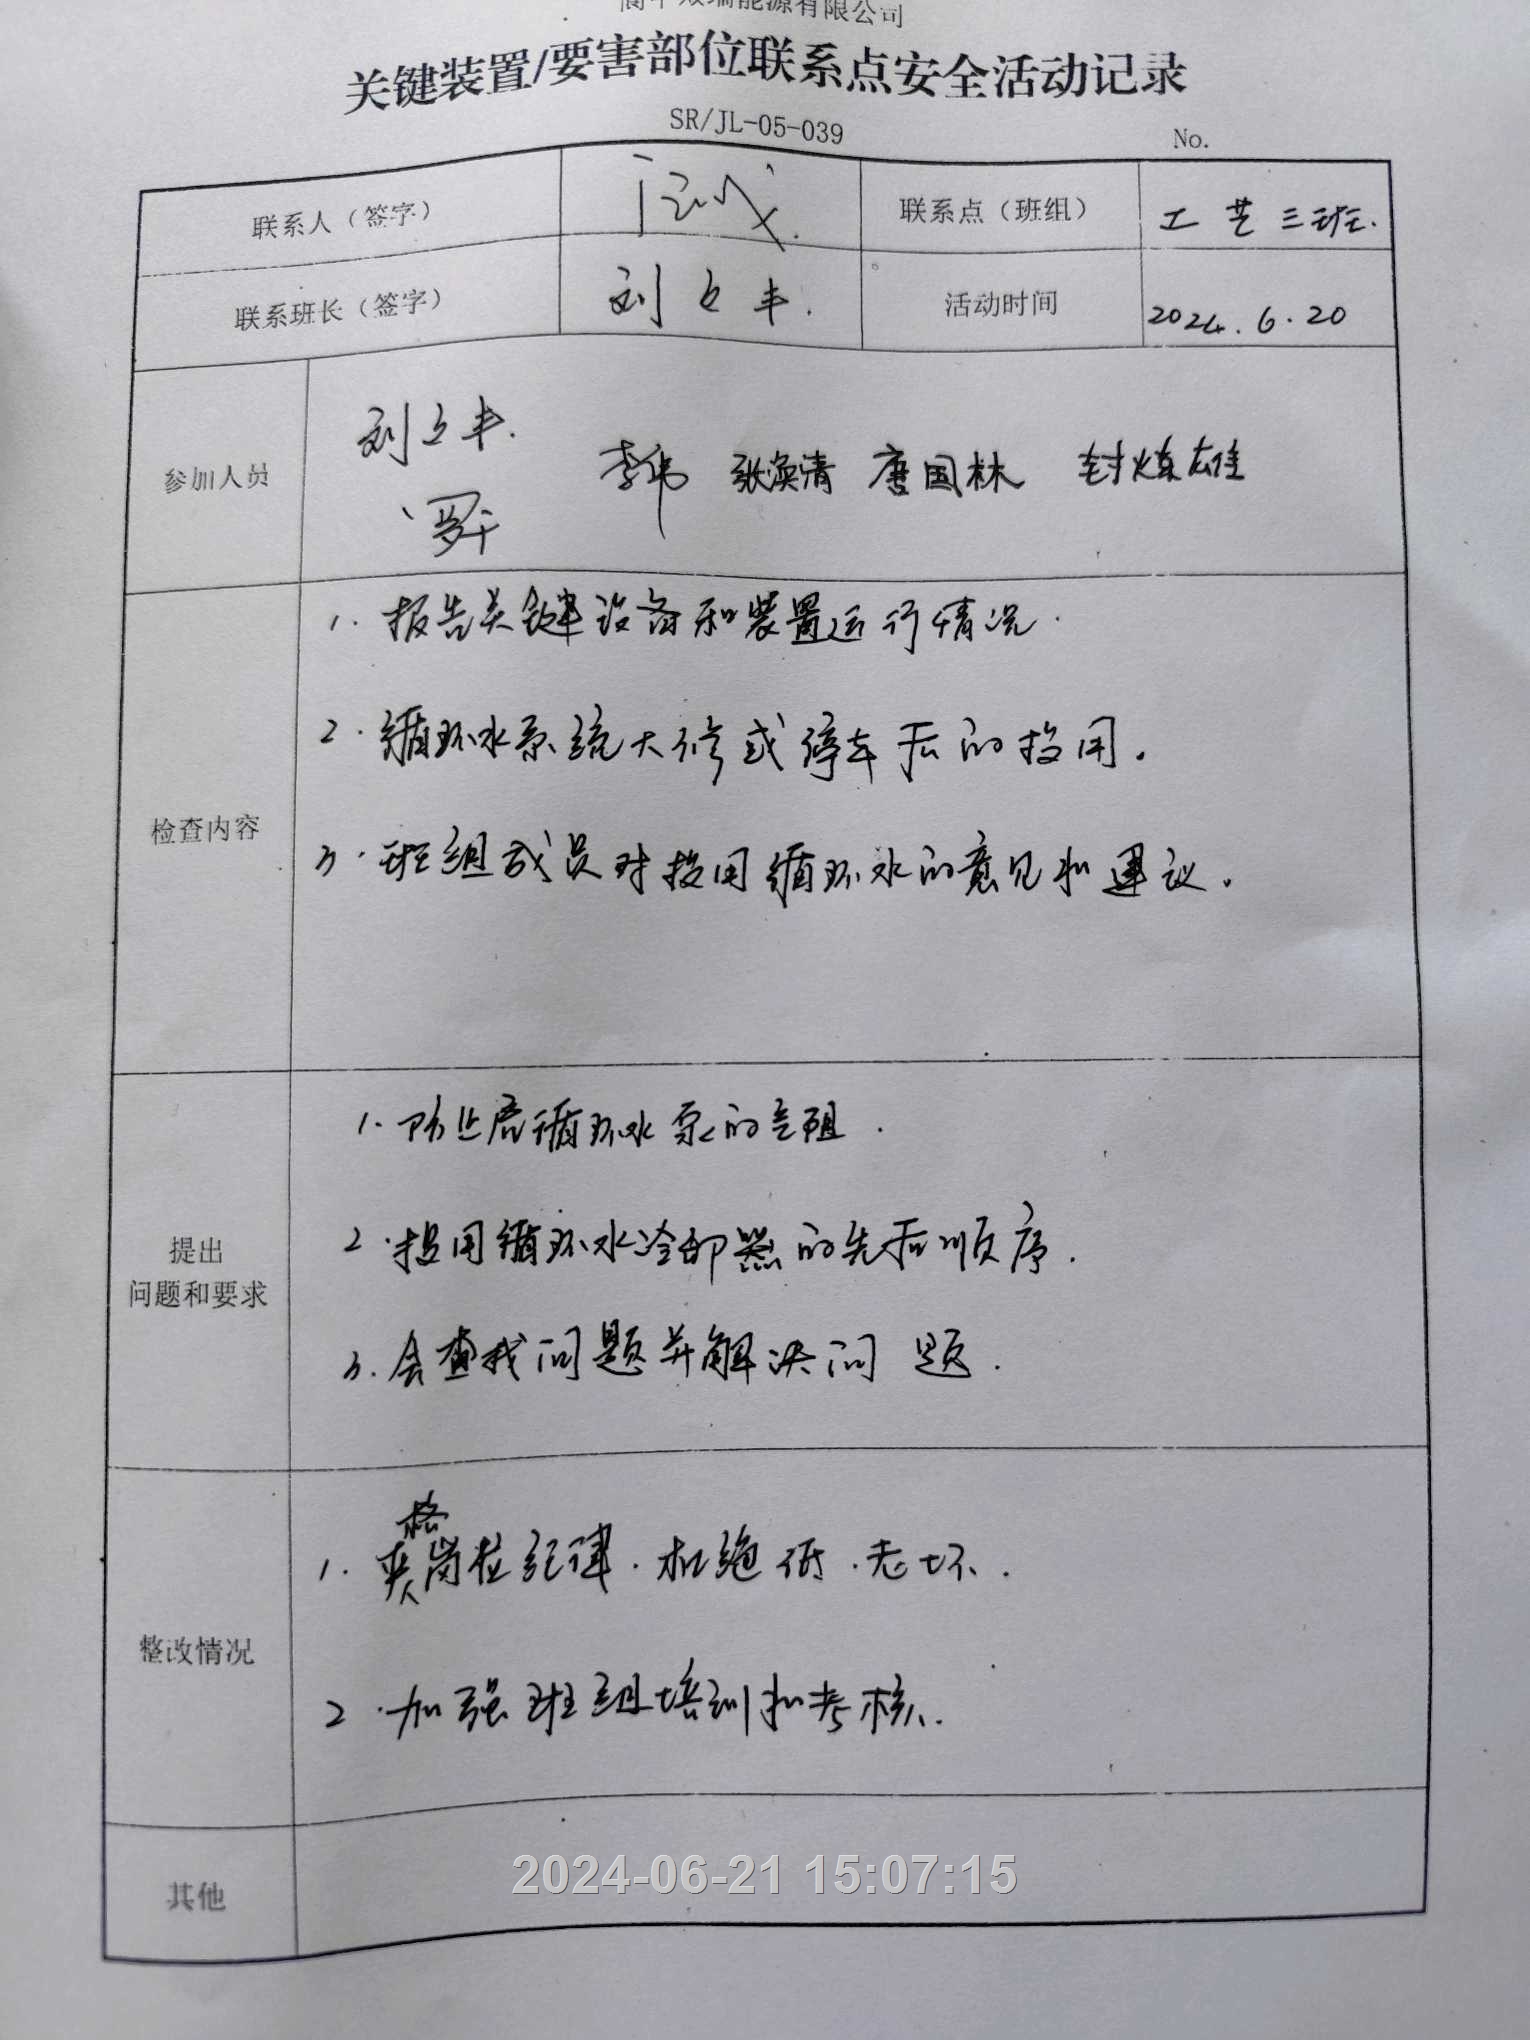 能源有限公司
关键装置/要害部位联系点安全活动记录
SR/JL-05-039
No.
联系人（签字） 联系点（班组） 工艺三班.
联系班长（签字） 刘文丰. 活动时间 2024.6.20
参加人员
刘文丰.
李伟 张涣清 唐国林 封焕雄
罗干
检查内容
1. 报告关键设备和装置运行情况.
2. 循环水系统大修或停车后的投用。
3. 班组成员对投用循环水的意见和建议。
提出
问题和要求
1. 防止启循环水泵的气阻.
2. 投用循环水冷却器的先后顺序.
3. 会查找问题并解决问题.
整改情况
格
1. 岗位纪律.杜绝低.老坏.
2. 加强班组培训和考核.
其他
2024-06-21 15:07:15